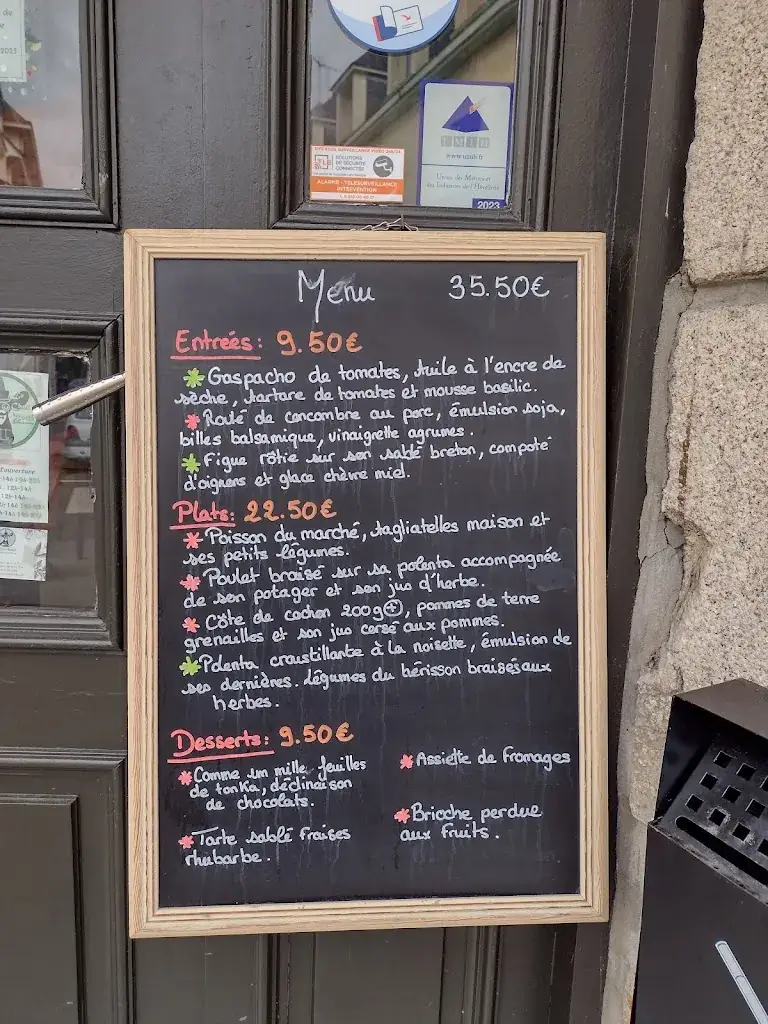 2023
SOLUTIONS
DE SÉCURITÉ
CONNECTÉES
ALARME - TÉLÉSURVEILLANCE
INTERVENTION
UMIH
www.umih.fr
Union des Métiers et
des Industries de l'Hôtellerie
2023
Menu 35.50€
Entrées: 9.50€
Gaspacho de tomates, tuile à l'encre de
sèche, tartare de tomates et mousse basilic.
Roulé de concombre au porc, émulsion soja,
billes balsamique, vinaigrette agrumes.
Figue rôtie sur son sablé breton, compoté
d'oignons et glace chèvre miel.
Plats: 22.50€
Poisson du marché, tagliatelles maison et
ses petits légumes.
Poulet braisé sur sa polenta accompagnée
de son potager et son jus d'herbe.
Côte de cochon 200g+, pommes de terre
grenailles et son jus corsé aux pommes.
Polenta croustillante à la noisette, émulsion de
ses dernières. légumes du hérisson braisés aux
herbes.
Desserts: 9.50€
Comme un mille feuilles
de tonka, déclinaison
de chocolats.
Tarte sablé fraises
rhubarbe.
Assiette de fromages
Brioche perdue
aux fruits.